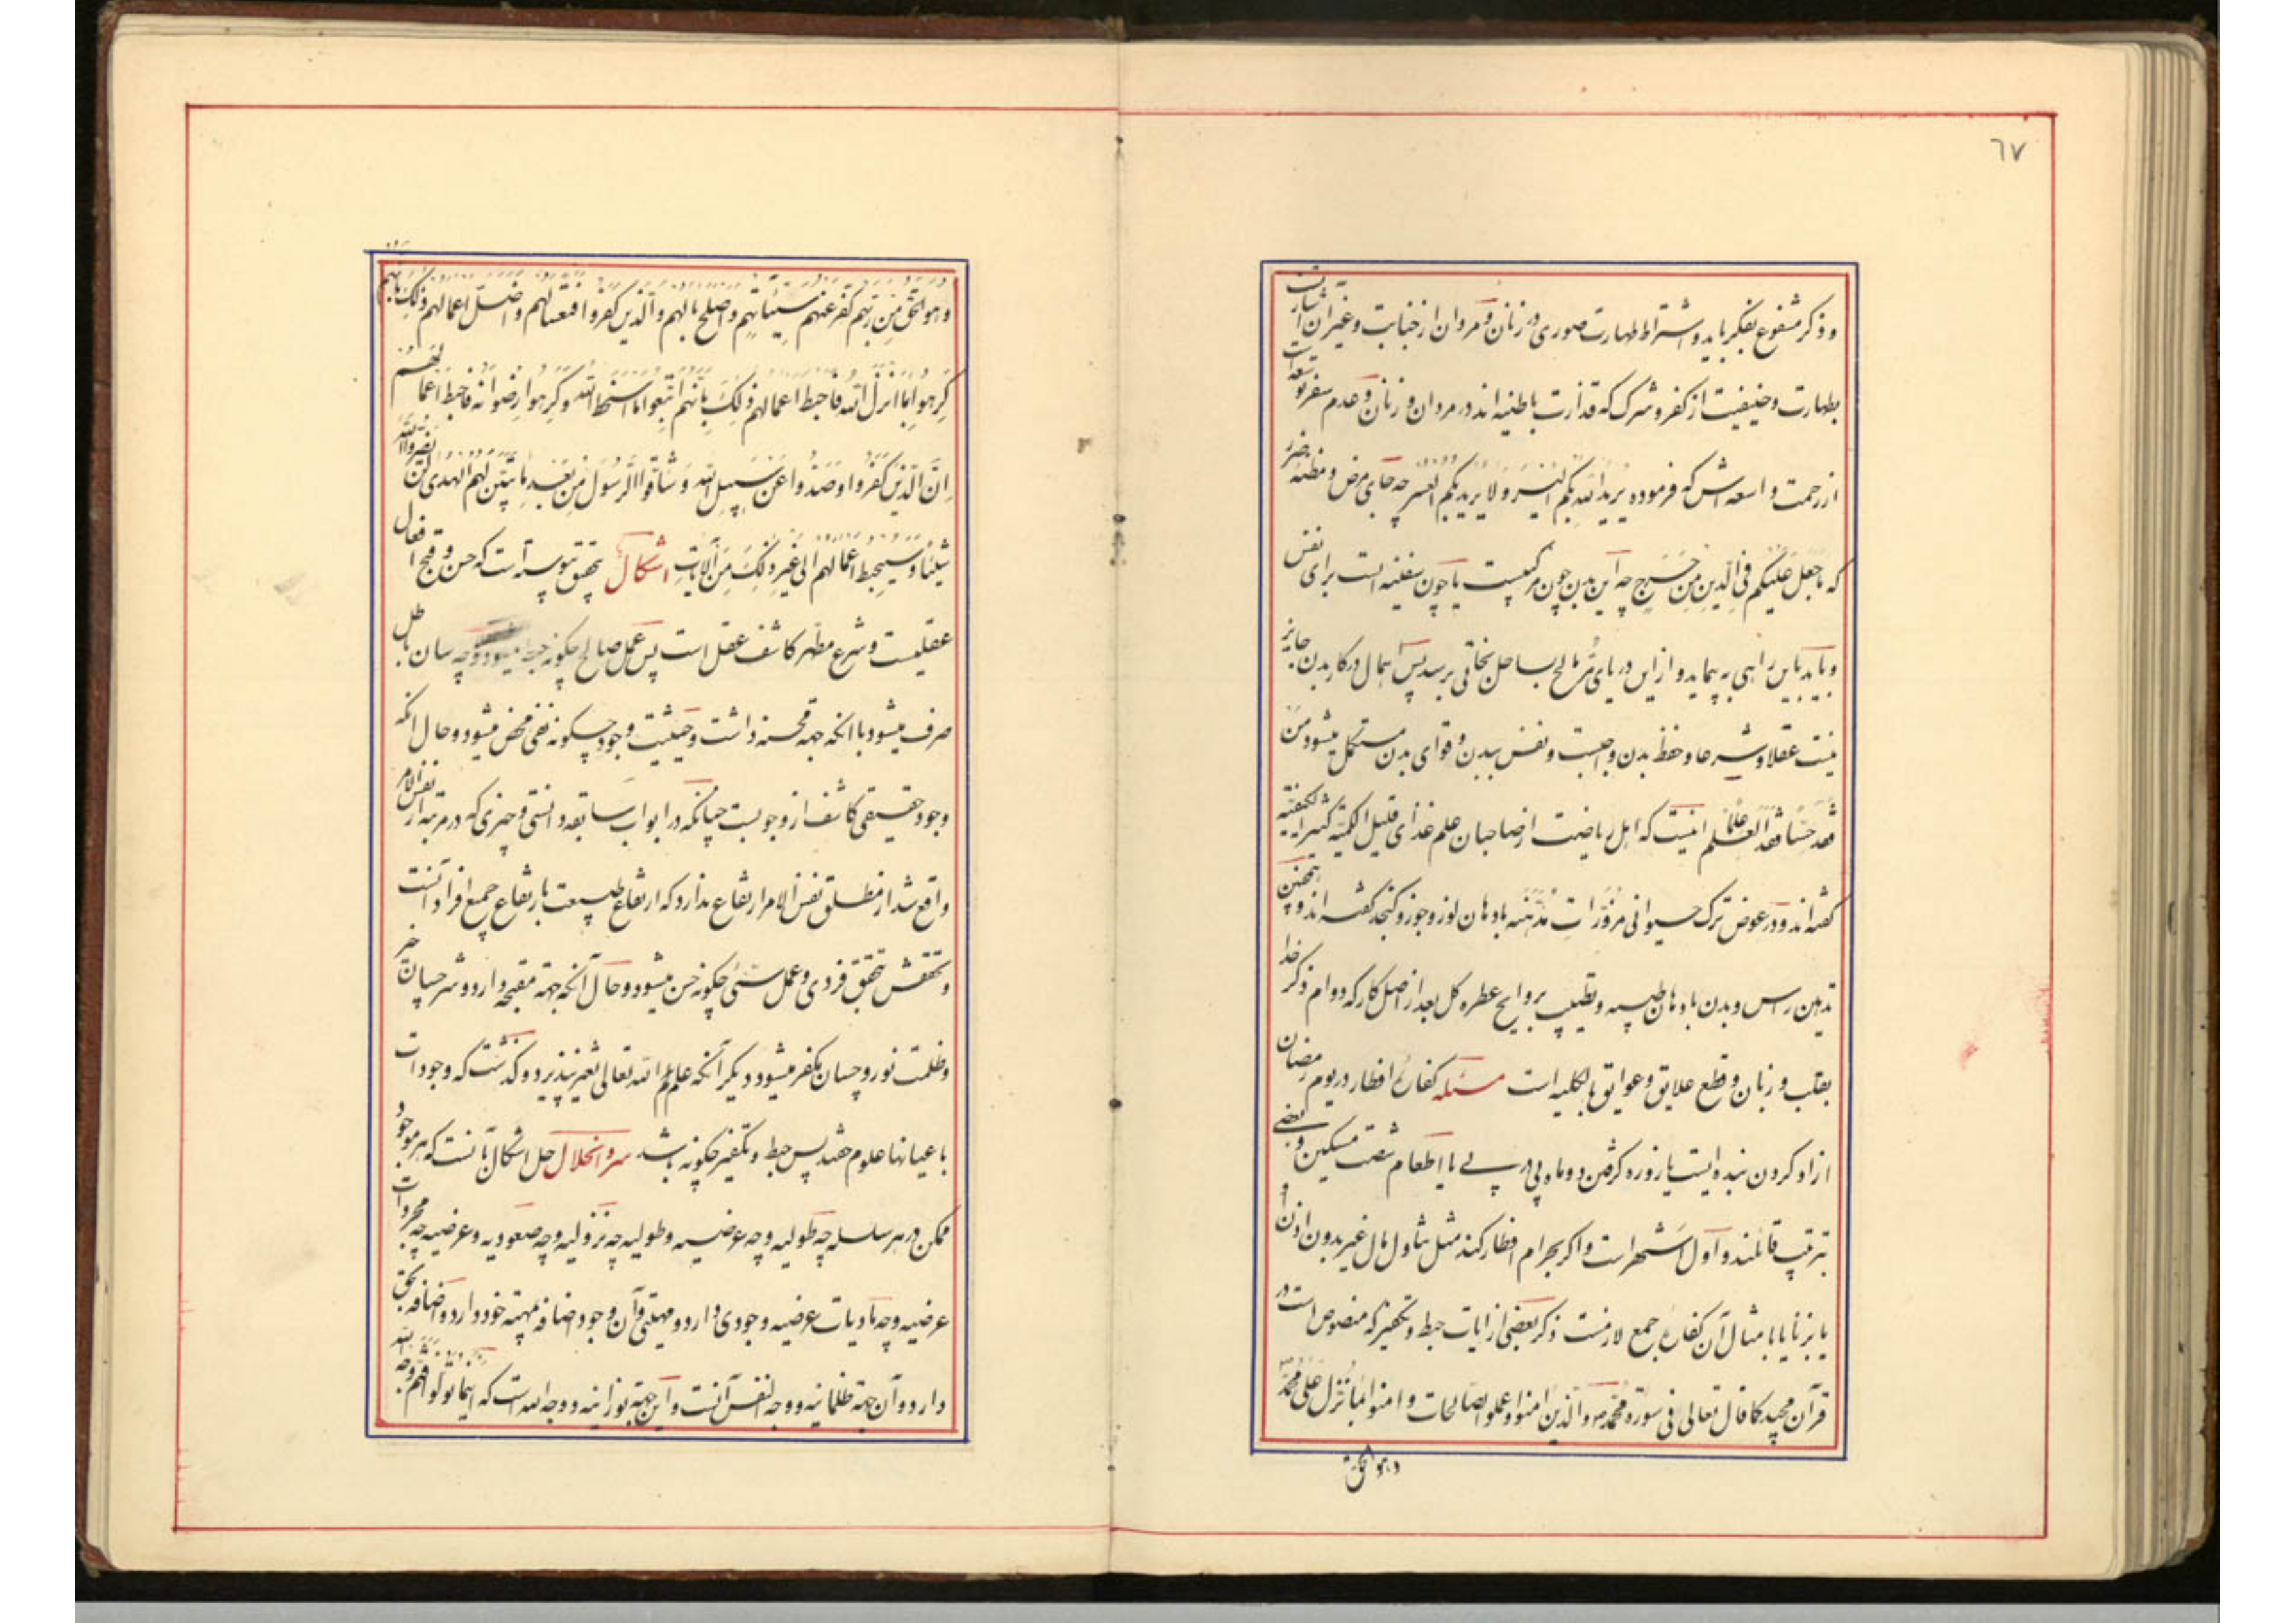 ٦٧
و ذکر مشفوع بفکر باید و اشتراط طهارت صوری در زنان و مردان از جنابت و غیر آن اشارتست
بطهارت و حنیفیت از کفر و شرک که قذارت باطنیه اند در مردان و زنان و عدم سفر
از رحمت واسعه اش که فرموده یرید الله بکم الیسر و لا یرید بکم العسر چه جای مرض و مظنه ضرر
که ما جعل علیکم فی الدین من حرج چه این بدن چون مرکبیست یا چون سفینه است برای نفس
و باید باین راهی به پیماید و از این دریای مالح بساحل نجاتی برسد پس اهمال در کار بدن جایز
نیست عقلا و شرعا و حفظ بدن واجبست و نفس ببدن و قوای بدن مستکمل میشود من
فقد حسا فقد العلم علما اینست که اهل ریاضت از صاحبان علم غذای قلیل الکمیه کثیر الکیفیه
گفته اند و در عوض ترک حیوانی مزورات مدهنه بادهان لوز و جوز و کنجد گفته اند و همچنین
تدهین راس و بدن بادهان طیبه و تطییب بروایح عطره کل بعد از اصل کار که دوام ذکر خدا
بقلب و زبان و قطع علایق و عوایق بالکلیه است مسئله کفاره افطار در یوم رمضان
ازاد کردن بنده ایست یا روزه گرفتن دو ماه پی در پی یا اطعام شصت مسکین و بعضی
بترتیب قائلند و اول اشهر است و اگر بحرام افطار کند مثل تناول مال غیر بدون اذن او
یا بزنا یا بامثال آن کفاره جمع لازمست ذکر بعضی از ایات حبط و تکفیر که منصوص است در
قرآن مجید کما قال تعالی فی سورة محمد ص و الذین امنوا و عملوا الصالحات و امنوا بما نزل علی محمد
و هو الحق
و هو الحق من ربهم کفر عنهم سیئاتهم و اصلح بالهم و الذین کفروا فتعسا لهم و اضل اعمالهم ذلک بانهم
کرهوا ما انزل الله فاحبط اعمالهم ذلک بانهم اتبعوا ما اسخط الله و کرهوا رضوانه فاحبط اعمالهم
ان الذین کفروا و صدوا عن سبیل الله و شاقوا الرسول من بعد ما تبین لهم الهدی لن یضروا الله
شیئا و سیحبط اعمالهم الی غیر ذلک من الایات اشکال بتحقیق پیوسته است که حسن و قبح افعال
عقلیست و شرع مطهر کاشف عقل است پس عمل صالح چگونه حبط میشود و چه سان باطل
صرف میشود با انکه جهه محسنه داشت و حیثیت وجود چگونه نفی محض میشود و حال انکه
وجود حقیقی کاشف از وجوبست چنانکه در ابواب سابقه دانستی و چیزی که در مرتبه از نفس الامر
واقع شد از مطلق نفس الامر ارتفاع ندارد که ارتفاع طبیعت بارتفاع جمیع افراد آنست
و تحققش بتحقق فردی و عمل سیئ چگونه حسن میشود و حال آنکه جهة مقبحه دارد و شر چسان خیر
و ظلمت نور و چسان مکفر میشود دیگر آنکه علم الله تعالی تغیر نپذیرد و گذشت که وجودات
باعیانها علوم حقند پس حبط و تکفیر چگونه باشد سر و انحلال حل اشکال بآنست که هر موجود
ممکن در هر سلسله چه طولیه و چه عرضیه و طولیه چه نزولیه و چه صعودیه و عرضیه چه مجردات
عرضیه و چه مادیات عرضیه وجودی دارد و مهیتی و آن وجود اضافه بمهیته خود دارد و اضافه بحق
دارد و آن جهة ظلمانیه و وجه النفس آنست و این جهة نورانیه و وجه الله است که اینما تولوا فثم وجه الله